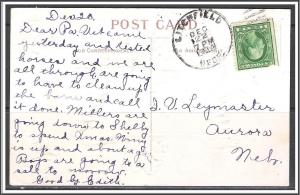 Dec 20,
POST CARD
Dear Pa. Wet came
yesterday and rested
horses and we are
all through are going
to have to clean up
the house and call
it done. Millers are
going down to Shelb
to spend Xmas.
is up and about again
Boys are going to a
sale to morrow.
Good by Edith.
LITCHFIELD
DEC
PM
NEBR.
J. V. Leymaster
Aurora
Neb.